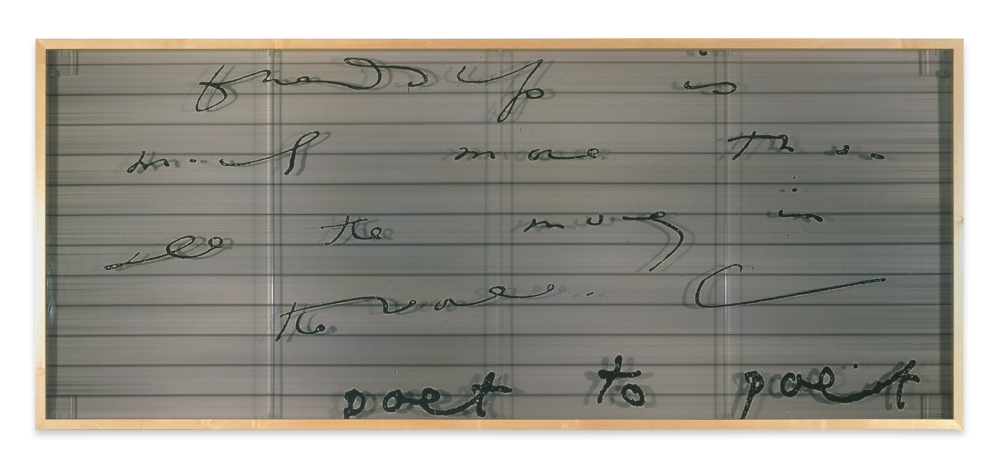 friendship is
much more than
all the money in
the
poet to poet